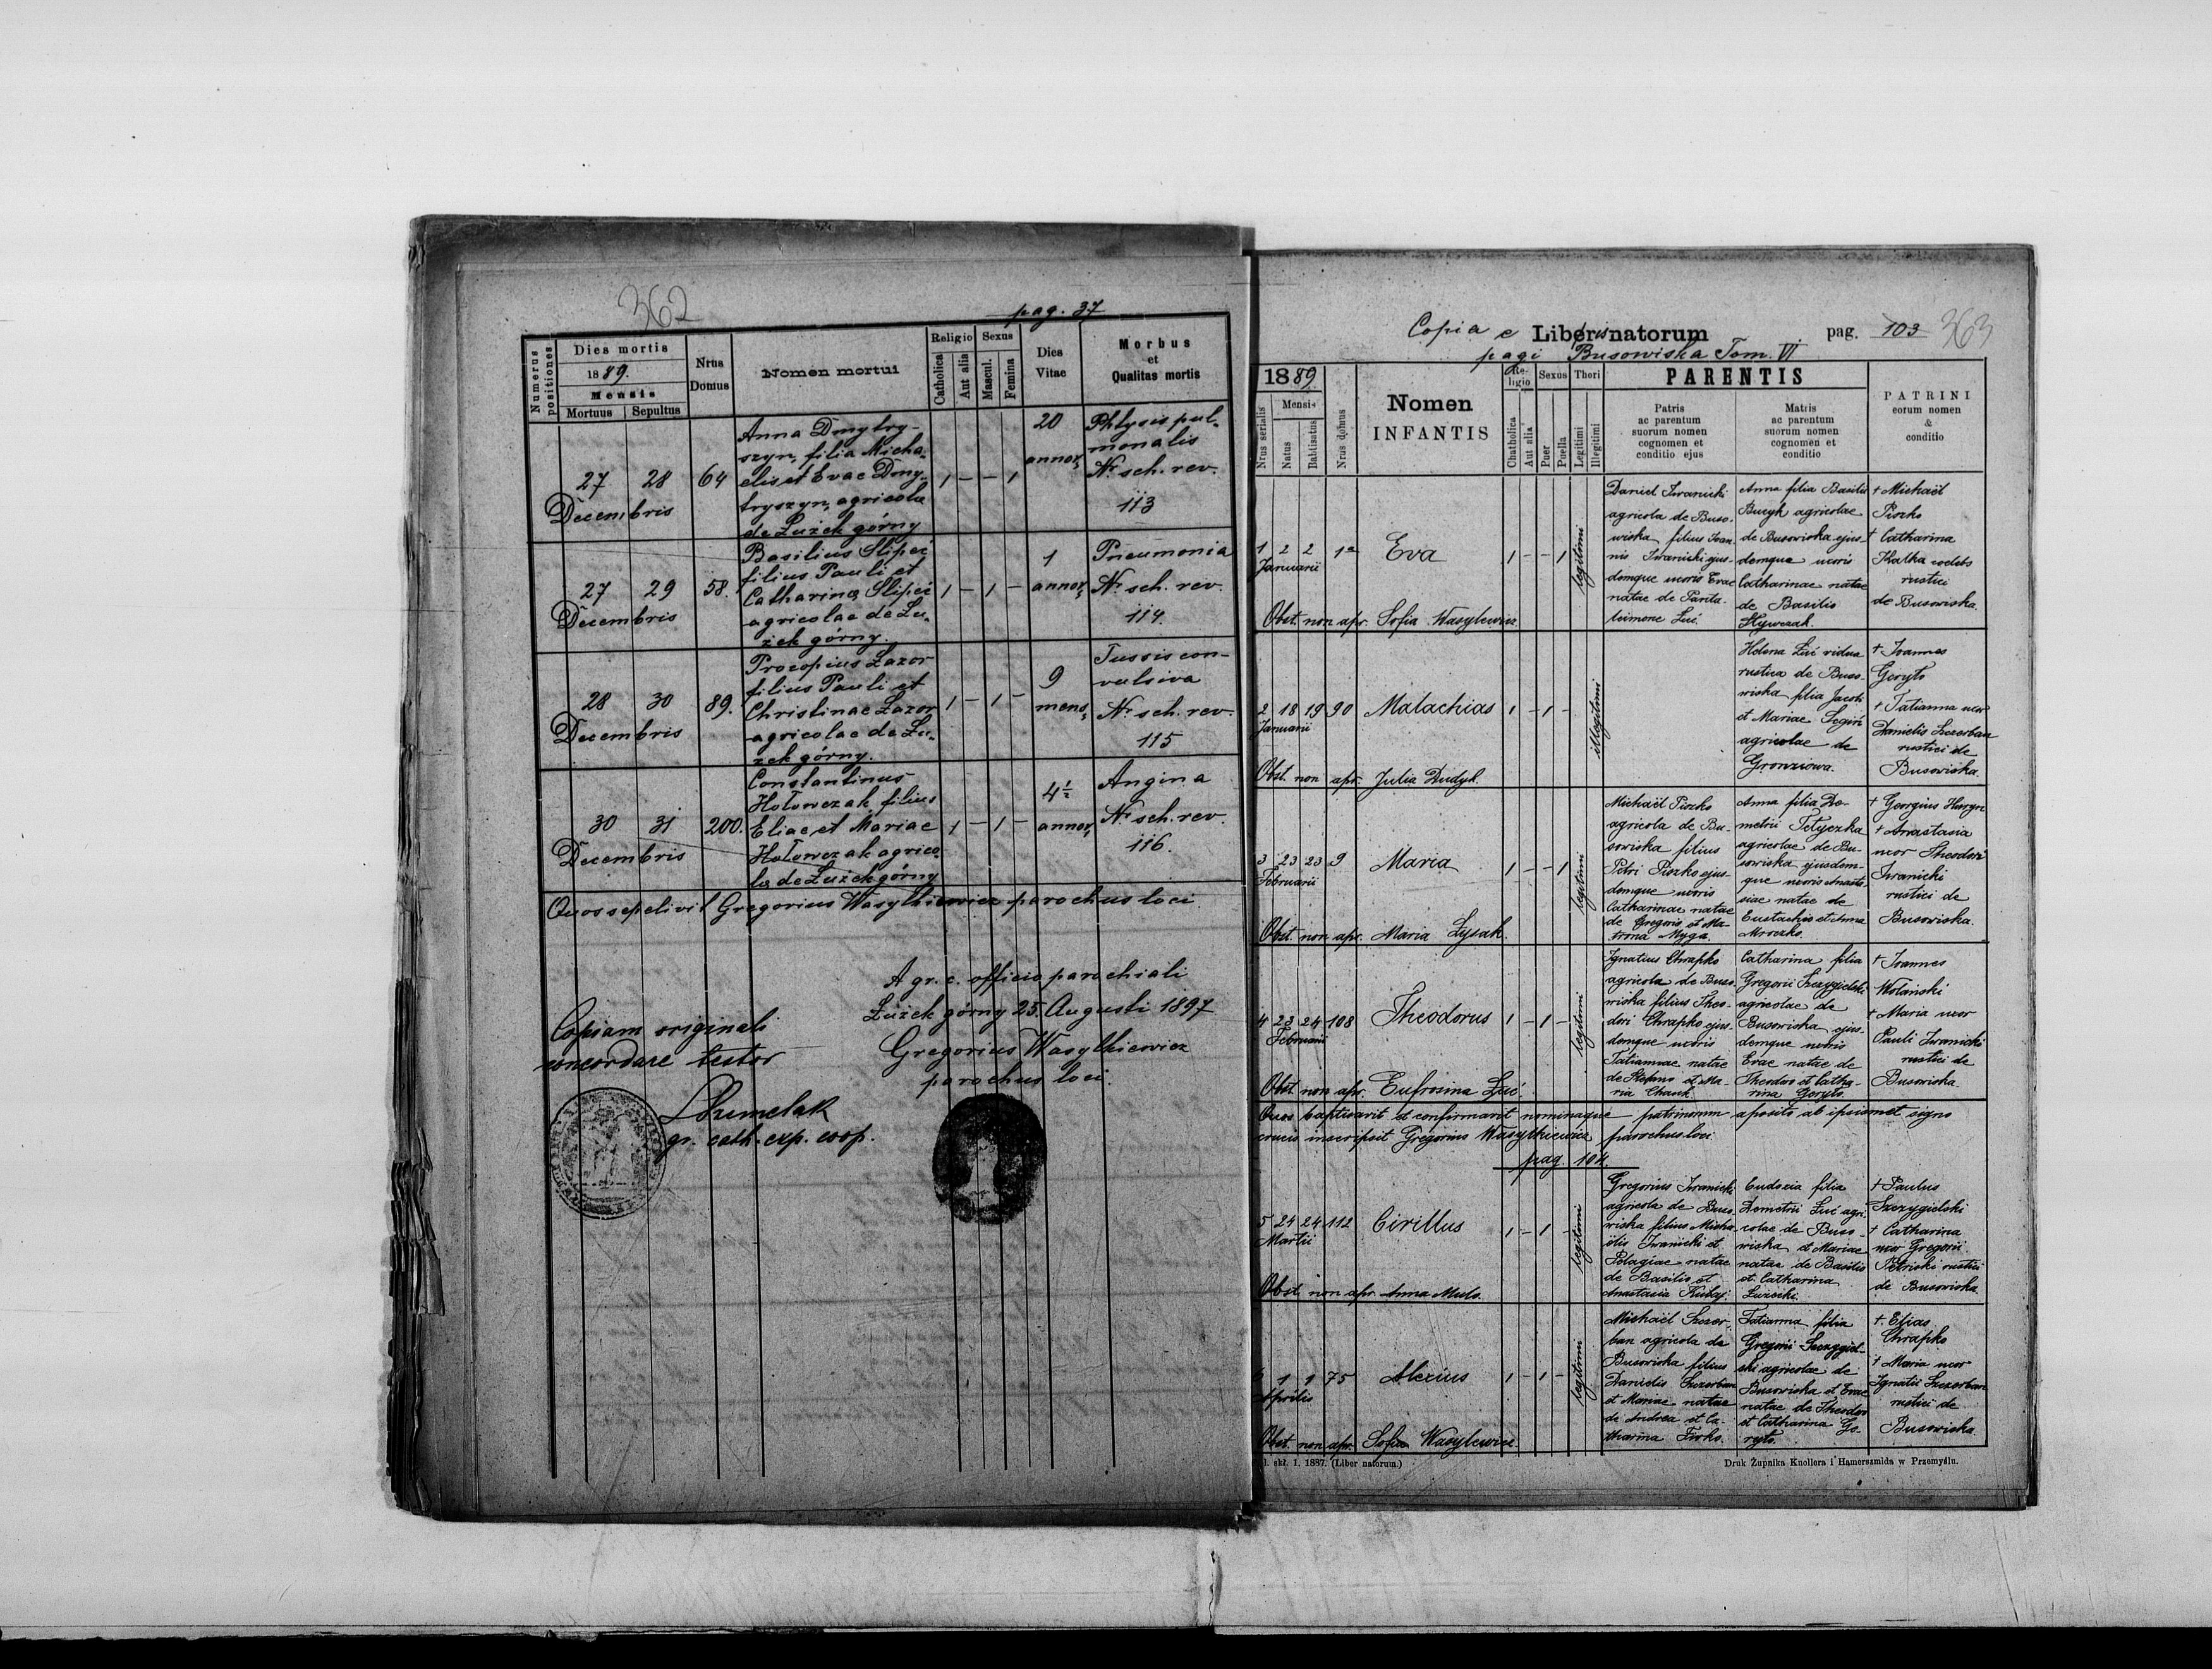 362
pag. 37
Numerus positiones
Dies mortis
1889.
Mensis
Mortuus Sepultus
Nrus Domus
Nomen mortui
Religio
Catholica
Aut alia
Sexus
Mascul.
Femina
Dies Vitae
Morbus
et
Qualitas mortis
27 28
Decembris
64
Anna Dmytry-
szyn, filia Micha-
elis et Evae Dmy-
tryszyn, agricolae
de Łużek górny
1 – – 1
20
annor,
Phtysis pul-
monalis
Nr. sch. rev.
113
27 29
Decembris
58.
Basilius Slipei
filius Pauli et
Catharinae Slipei
agricolae de Łu-
żek górny.
1 – 1 –
1
annor,
Pneumonia
Nr. sch. rev.
114.
28 30
Decembris
89.
Procopius Łazor
filius Pauli et
Christinae Łazor
agricolae de Łu-
żek górny.
1 – 1 –
9
mens,
Tussis con-
vulsiva
Nr. sch. rev.
115
30 31
Decembris
200.
Constantinus
Hołowczak, filius
Eliae et Mariae
Hołowczak agrico-
lae de Łużek górny
1 – 1 –
4½
annor,
Angina
Nr. sch. rev.
116.
Quos sepelivit Gregorius Wasylkiewicz parochus loci
A gr. c. officio parochiali
Łużek górny 25. Augusti 1897
Gregorius Wasylkiewicz
parochus loci.
Copiam originali
concordare testor
gr. cath. exp. coop.
Copia e Libris natorum pag. 103 363
pagi Busowiska Tom. VI.
1889
Nrus serialis
Mensis
Natus
Babtisatus
Nrus domus
Nomen
INFANTIS
Religio
Chatholica
Aut alia
Sexus
Puer
Puella
Thori
Legitimi
Illegitimi
PARENTIS
Patris
ac parentum
suorum nomen
cognomen et
conditio ejus
Matris
ac parentum
suorum nomen
cognomen et
conditio
PATRINI
eorum nomen
&
conditio
1 2 2 1a
Januarii
Eva
1 – – 1
legitimi
Daniel Iwanicki
agricola de Buso-
wiska filius Joan-
nis Iwanicki ejus-
demque uxoris Evae
natae de Panta-
leimone Łuć.
Anna filia Basilii
agricolae
de Busowiska ejus-
demque uxoris
Catharinae natae
de Basilio
† Michaël
Piszko
† Catharina
rustici
de Busowiska.
Obst. non apr. Sofia Wasylewicz
2 18 19 90
Januarii
Malachias
1 – 1 –
illegitimi
Helena Łuć vidua
rustica de Buso-
wiska filia Jacobi
et Mariae
agricolae de
Gronziowa.
† Joannes
Goryto
† Tatianna uxor
Danielis Szczerban
rustici de
Busowiska.
Obst. non apr. Julia Dudyk.
3 23 23 9
Februarii
Maria
1 – – 1
legitimi
Michaël Piszko
agricola de Bu-
sowiska filius
Petri Piszko ejus-
demque uxoris
Catharinae natae
de Gregorio et Ma-
trona Myga.
Anna filia De-
metrii Tetyczka
agricolae de Bu-
sowiska ejusdem-
que uxoris Anasta-
siae natae de
Eustachio et Anna
Mroczko.
† Georgius
† Anastasia
uxor Theodori
Iwanicki
rustici de
Busowiska.
Obst. non apr. Maria Łysak.
4 23 24 108
Februarii
Theodorus
1 – 1 –
legitimi
Ignatius Chrapko
agricola de Buso-
wiska filius Theo-
dori Chrapko ejus-
demque uxoris
Tatiannae natae
de Stefano et Ma-
ria
Catharina filia
Gregorii Szczygielski
agricolae de
Busowiska ejus-
demque uxoris
Evae natae de
Theodoro et Catha-
rina Goryto.
† Joannes
Wolański
† Maria uxor
Pauli Iwanicki
rustici de
Busowiska.
Obst. non apr. Eufrosina Łuć.
Quos baptisavit et confirmavit nominaque patrinorum aposito ab ipsismet signo
crucis inscripsit Gregorius Wasylkiewicz parochus loci.
pag. 104.
5 24 24 112
Martii
Cirillus
1 – 1 –
legitimi
Gregorius Iwanicki
agricola de Buso-
wiska filius Micha-
ëlis Iwanicki et
Pelagiae natae
de Basilio et
Anastasia
Eudoxia filia
Demetrii Łuć agri-
colae de Buso-
wiska et Mariae
natae de Basilio
et Catharina
Łuzecki.
† Paulus
Szczygielski
† Catharina
uxor Gregorii
rustici
de Busowiska.
Obst. non apr. Anna
6 1 1 75
Aprilis
Alexius
1 – 1 –
legitimi
Michaël Szczer-
ban agricola de
Busowiska filius
Danielis Szczerban
et Mariae natae
de Andrea et Ca-
tharina
Tatianna filia
Gregorii Szczygiel-
ski agricolae de
Busowiska et Evae
natae de Theodoro
et Catharina Go-
ryto.
†. Elias
Chrapko
† Maria uxor
Ignatii Szczerban
rustici de
Busowiska.
Obst. non apr. Sofia Wasylewicz.
l. skł. I. 1887. (Liber natorum.)
Druk Żupnika Knollera i Hamerszmida w Przemyślu.